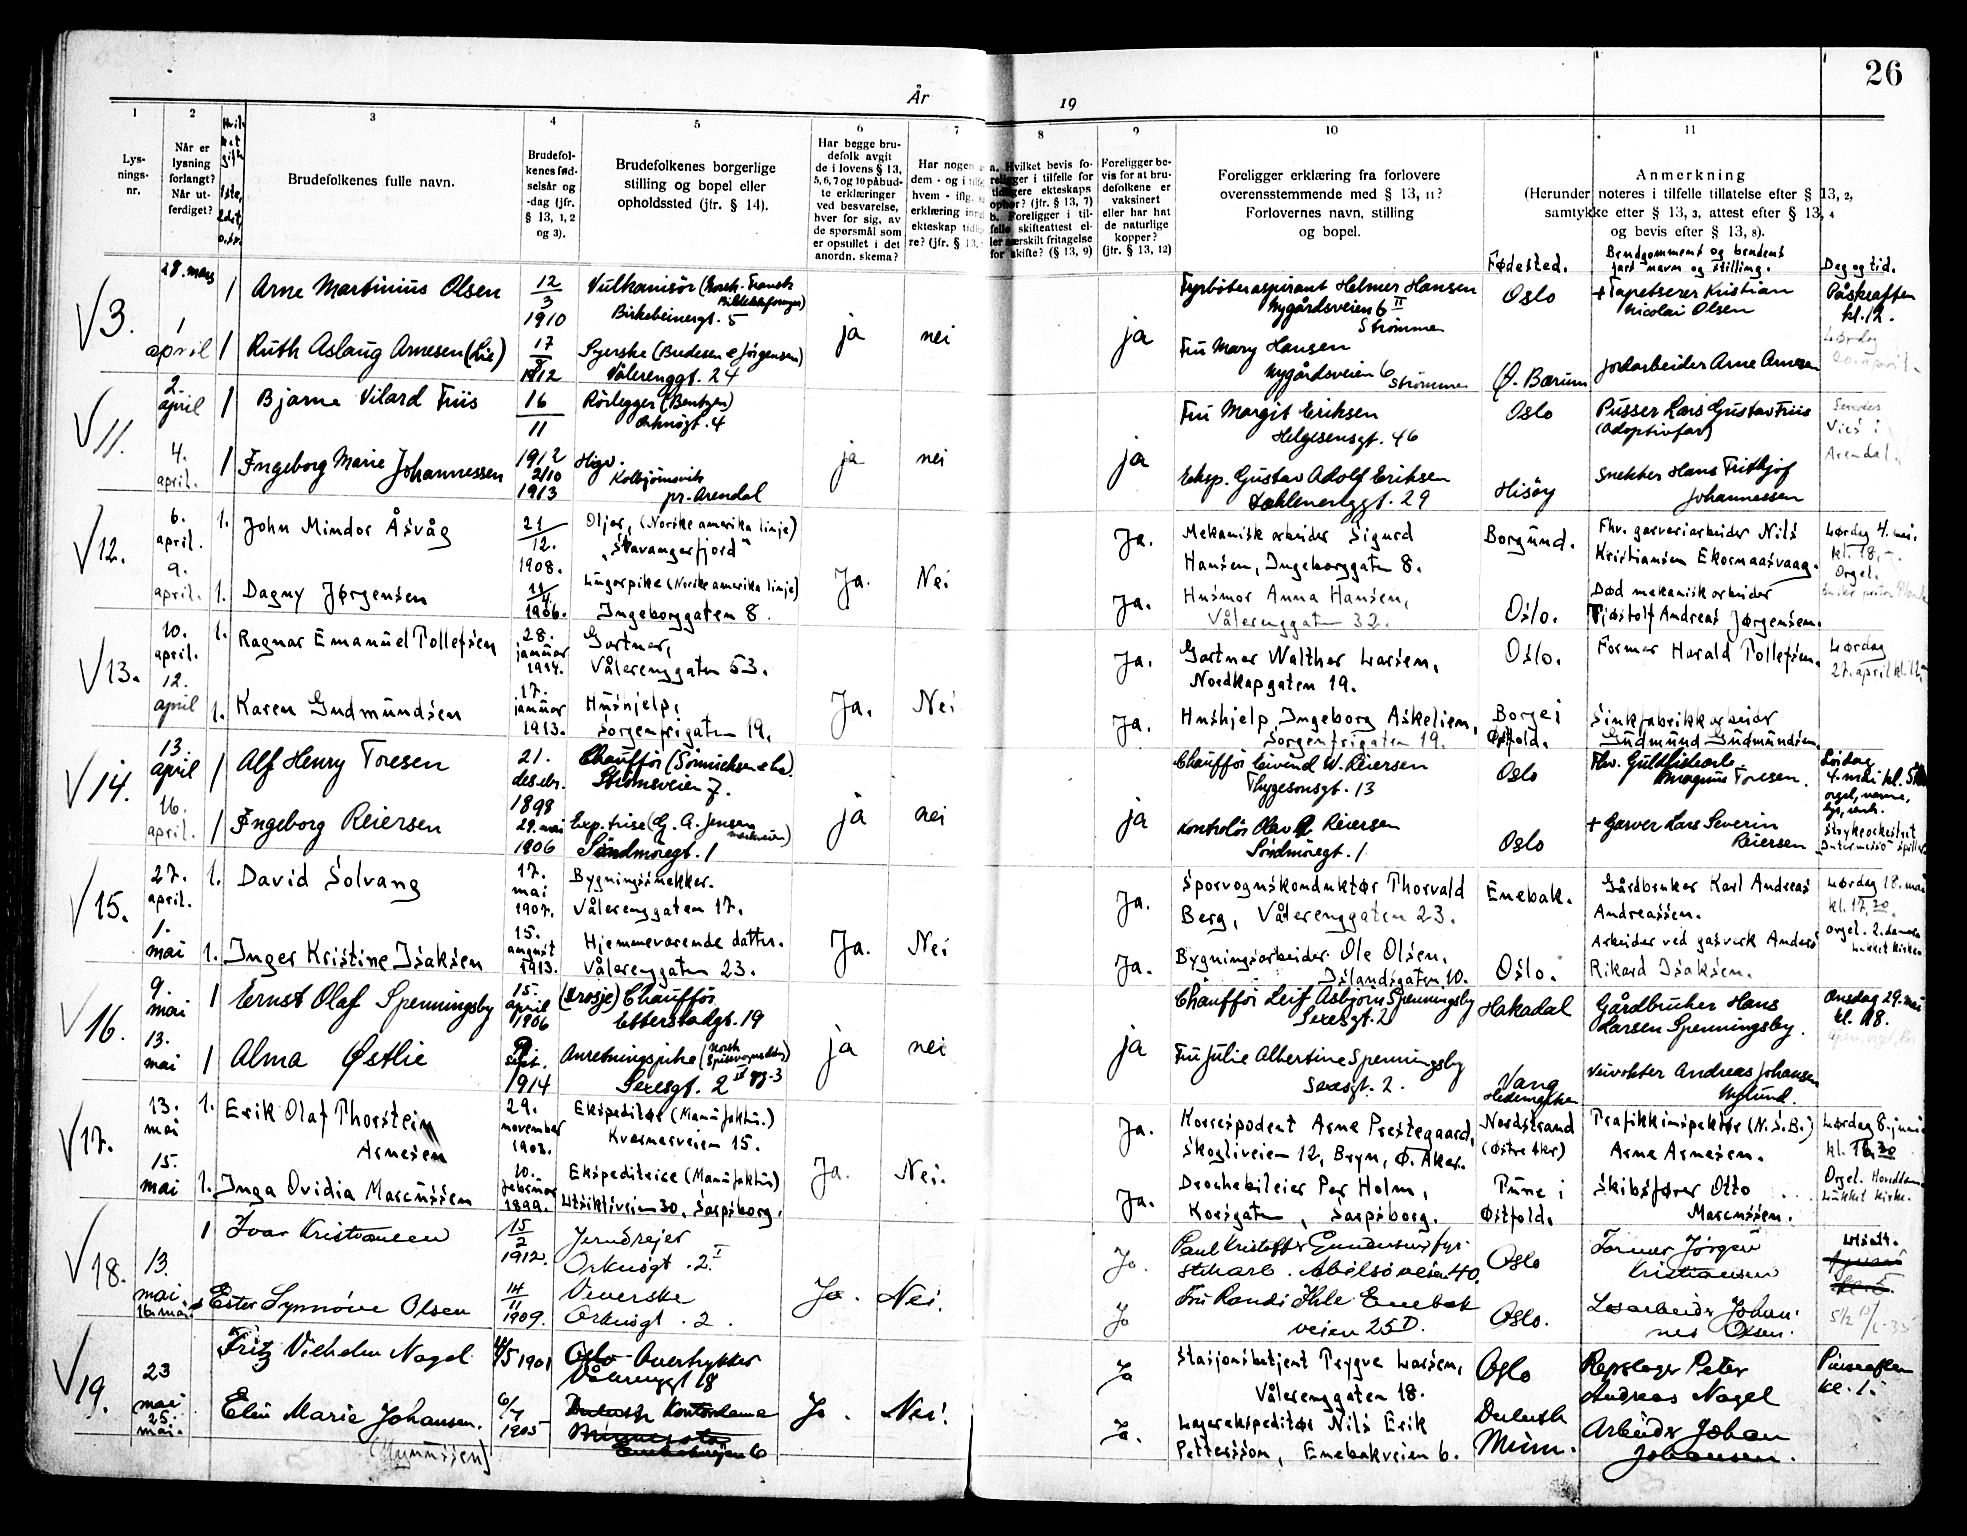 26
År 19
1 2 3 4 5 6 7 8 9 10 11
Lysningsnr.
Når er lysning forlangt? Når utferdiget?
Brudefolkenes fulle navn.
Brudefolkenes fødselsår og -dag (jfr. § 13, 1, 2 og 3).
Brudefolkenes borgerlige stilling og bopel eller opholdssted (jfr. § 14).
Har begge brudefolk avgitt de i lovens § 13, 5, 6, 7 og 10 påbudte erklæringer ved besvarelse, hver for sig, av de spørsmål som er opstillet i det anordn. skema?
Foreligger bevis for at brudefolkene er vaksinert eller har hat de naturlige kopper? (jfr. § 13, 12)
Foreligger erklæring fra forlovere overensstemmende med § 13, 11? Forlovernes navn, stilling og bopel.
Anmerkning
(Herunder noteres i tilfelle tillatelse efter § 13, 2, samtykke efter § 13, 3, attest efter § 13, 4 og bevis efter § 13, 8).
Fødested.
Brudgommens og brudens fars navn og stilling.
Dag og tid.
3.
28. mars
1 Arne Martinius Olsen
12/3 1910
Vulkanisør
Birkebeinergt. 5
Fyrbøteraspirant Helmer Hansen
Nygårdsveien 6 II
Strømmen
Oslo
+ Tapetserer Kristian
Nicolai Olsen
Påskeaften
kl. 12.
1 april
1 Ruth Aslaug Arnesen (Lie)
17/8 1912
Syerske (Bredesen & Jørgensen)
Vålerenggt. 24
ja nei ja
Fru Mary Hansen
Nygårdsveien 6 Strømmen
Ø. Bærum
Jordarbeider Arne Arnesen
11.
2. april
1 Bjarne Vilard Friis
16/11 1912
Rørlegger (Bentzen)
Orknøgt. 4
Fru Margit Eriksen
Helgesensgt. 46
Oslo
Pusser Lars Gustav Friis
(Adoptivfar)
Arendal.
4. april.
1 Ingeborg Marie Johannessen
2/10 1913
Kolbjørnsvik
pr. Arendal
ja nei ja
Eksp. Gustav Adolf Eriksen
29
Hisøy
Snekker Hans Fritjof
Johannessen
12.
6. april.
1. John Mindor Åsvåg
21/12. 1908.
Oljer, (Norske amerika linje)
„Stavangerfjord"
Ja.
Mekanisk arbeider Sigurd
Hansen, Ingeborggaten 8.
Borgund.
Fhv. garveriarbeider Nils
Kristiansen Ekornaasvaag.
Lørdag 4. mai.
kl. 18,-
Orgel.
9. april.
1. Dagny Jørgensen
1906.
Lugarpike (Norske amerika linje)
Ingeborggaten 8.
Ja. Nei Ja.
Husmor Anna Hansen,
Vålerenggaten 32.
Oslo.
Død mekanisk arbeider
Tjøstolf Andreas Jørgensen.
13.
10. april.
1. Ragnar Emanuel Tollefsen
28. januar 1914.
Gartner,
Vålerenggaten 53.
Ja.
Gartner Walther Larsen,
Nordkapgaten 19.
Oslo.
Former Harald Tollefsen.
Lørdag
27. april kl. 12,-
12. april
1. Karen Gudmundsen
17. januar 1913.
Hushjelp,
Sorgenfrigaten 19.
Ja. Nei Ja.
Hushjelp, Ingeborg Askeliem,
Sorgenfrigaten 19.
Borge i
Østfold.
Sinkfabrikkarbeider
Gudmund Gudmundsen.
14.
13 april
1 Alf Henry Toresen
21. des.br. 1898
Chauffør
Strømsveien 7.
Chauffør Eivind W. Reiersen
Thygesonsgt. 13
Oslo
Fhv.
Magnus Toresen.
Lørdag
4. mai
16. april.
1 Ingeborg Reiersen
29. mai 1906
Exp.trise (G. A. Jensen
Søndmøregt. 1
ja nei ja
Kontrolør Olav Reiersen
Søndmøregt. 1
Oslo
+ Garver Lars Severin
Reiersen
Strykeorkestret
15.
27. april.
1. David Solvang
17. mai 1907.
Bygningssnekker.
Vålerenggaten 17.
Ja.
Sporvognskonduktør Thorvald
Berg, Vålerenggaten 23.
Enebak.
Gårdbruker Karl Andreas
Andreassen.
Lørdag 18. mai
kl. 17,30.
1. mai
1. Inger Kristine Isaksen
15. august 1913.
Hjemmeværende datter.
Vålerenggaten 23.
Ja. Nei Ja.
Bygningsarbeider Ole Olsen.
Islandsgaten 10.
Oslo.
Arbeider ved gasverk Anders
Rikard Isaksen.
16.
9. mai
1 Ernst Olaf Spenningsby
15. april 1906
(Drosje) Chauffør
Etterstadgt. 19
Chauffør Leif Asbjørn Spenningsby
Sexesgt. 2
Hakadal
Gårdbruker Hans
Larsen Spenningsby.
Onsdag 29. mai
kl. 18.
13. mai
1 Alma Østlie
sept. 1914
Anretningspike (Norsk Spisevognselsk.)
Sexesgt. 2
ja nei ja
Fru Julie Albertine Spenningsby
Sexesgt. 2.
Vang
Hedemarken
Veivokter Andreas Johansen
Nylund.
17.
13. mai
1. Erik Olaf Thorstein
Arnesen
29. november 1903.
Ekspeditør (Manufaktur.)
Kværnerveien 15.
Ja.
Korrespodent Arne Prestegaard,
Skogliveien 12, Bryn, Ø. Aker.
Nordstrand
(Østre Aker)
Trafikkinspektør (N.S.B.)
Arne Arnesen.
Lørdag 8. juni
15. mai
1. Inga Ovidia Marcussen
10. februar 1899.
Ekspeditrice (Manufaktur)
Utsiktsveien 30, Sarpsborg.
Ja. Nei. Ja.
Drochebileier Per Holm,
Korsgaten, Sarpsborg.
Tune i
Østfold.
Skibsfører Otto
Marcussen.
Lukket kirke.
18.
1 Ivar Kristiansen
15/2 1912.
Jerndreier
Orknøgt. 2 I
Jo.
Paul Kristoffer Gundersen
Abildsøveien 40.
Oslo
Former Jørgen
Kristiansen
13. mai.
16. mai.
Ester Synnöve Olsen
14/11 1909.
Veverske
Orknøgt. 2.
Ja. Nei. Jo
Fru Randi Ihle Enebak
veien 25D.
Oslo.
Løsarbeider Johan-
nes Olsen.
19.
23 mai
25. mai.
Fritz Vilhelm Nagel
1901
Oslo - Overtrykker
Vålerenggt 18
Ja
Stasjonsbetjent Trygve Larsen,
Vålerenggaten 18.
Oslo
Repslager Peter
Andreas Nagel
Pinseaften
kl. 1.
Elin Marie Johansen.
(Mynussen)
1905
Duluth Kontordame
Minnesota
Enebakveien 6
Jo. Nei. Ja.
Lagerekspeditør Nils Erik
Petterssson, Enebakveien 6.
Duluth
Minn.
Arbeider Johan
Johansen.